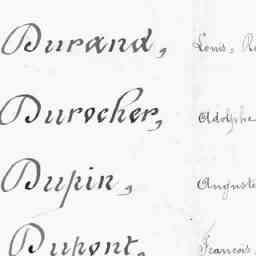 Durand, Louis, 
Durocher, Adolphe
Dupin, Auguste
Dupont, François,